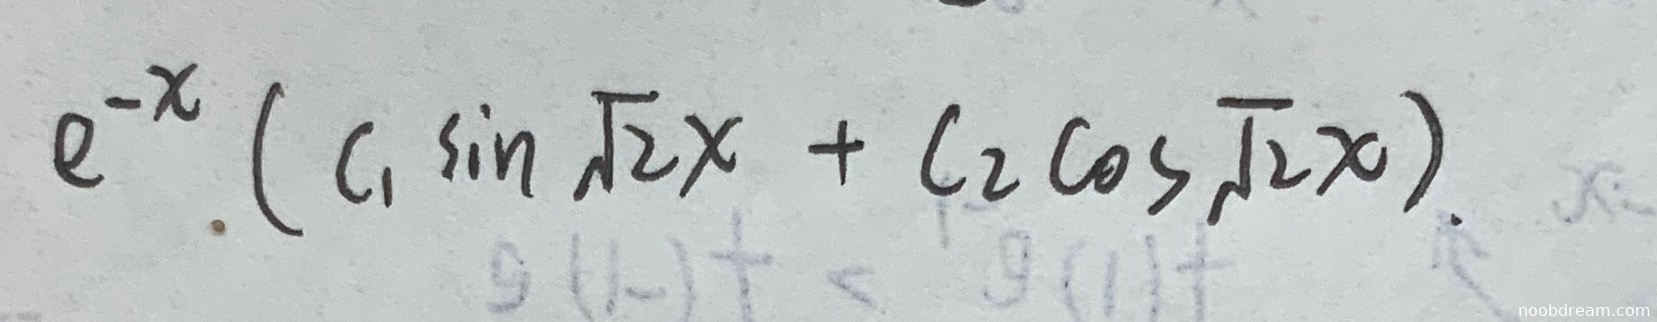 e^{-x} (C₁ sin √2x + C₂ cos √2x).
noobdream.com